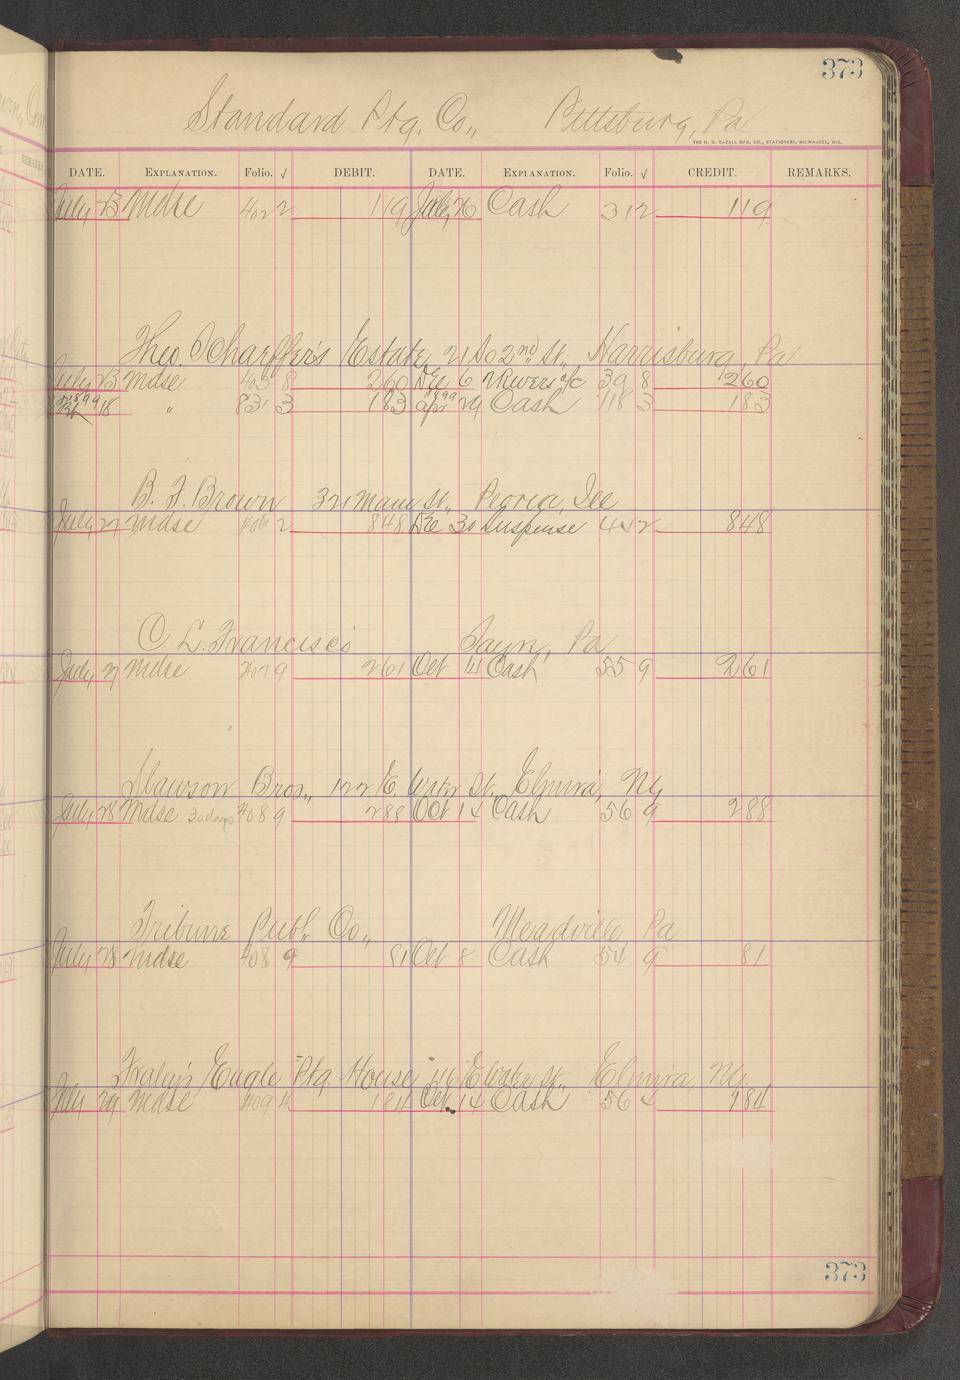 373
Standard Ptg. Co., Pittsburg, Pa
THE H. G. RAZALL MFG. CO., STATIONERS, MILWAUKEE, WIS.
DATE. EXPLANATION. Folio. √ DEBIT. DATE. EXPLANATION. Folio. √ CREDIT. REMARKS.
July 23 Mdse 402 2 119 July 26 Cash 31 2 119
Theo. Schaeffer's Estate, 21 So 2nd St., Harrisburg, Pa
July 23 Mdse 405 8 260 Dec 6 a/c 39 8 260
1899 18 " 831 3 183 1899 Apr 29 Cash 118 3 183
B. F. Brown 321 Main St., Peoria, Ill
July 27 Mdse 406 2 848 Dec 30 Suspense 2 848
C. L. Francisco Sayre, Pa
July 27 Mdse 407 9 261 Oct 14 Cash 55 9 261
Slawson Bros., 122 E Water St. Elmira, NY
July 28 Mdse 30 days 408 9 288 Oct 14 Cash 56 9 288
Tribune Publ. Co., Meadville Pa
July 28 Mdse 408 9 81 Oct 8 Cash 54 9 81
Eagle Ptg. House E Water St., Elmira, NY
July 29 Mdse 409 4 184 Oct. 14 Cash 56 4 184
373